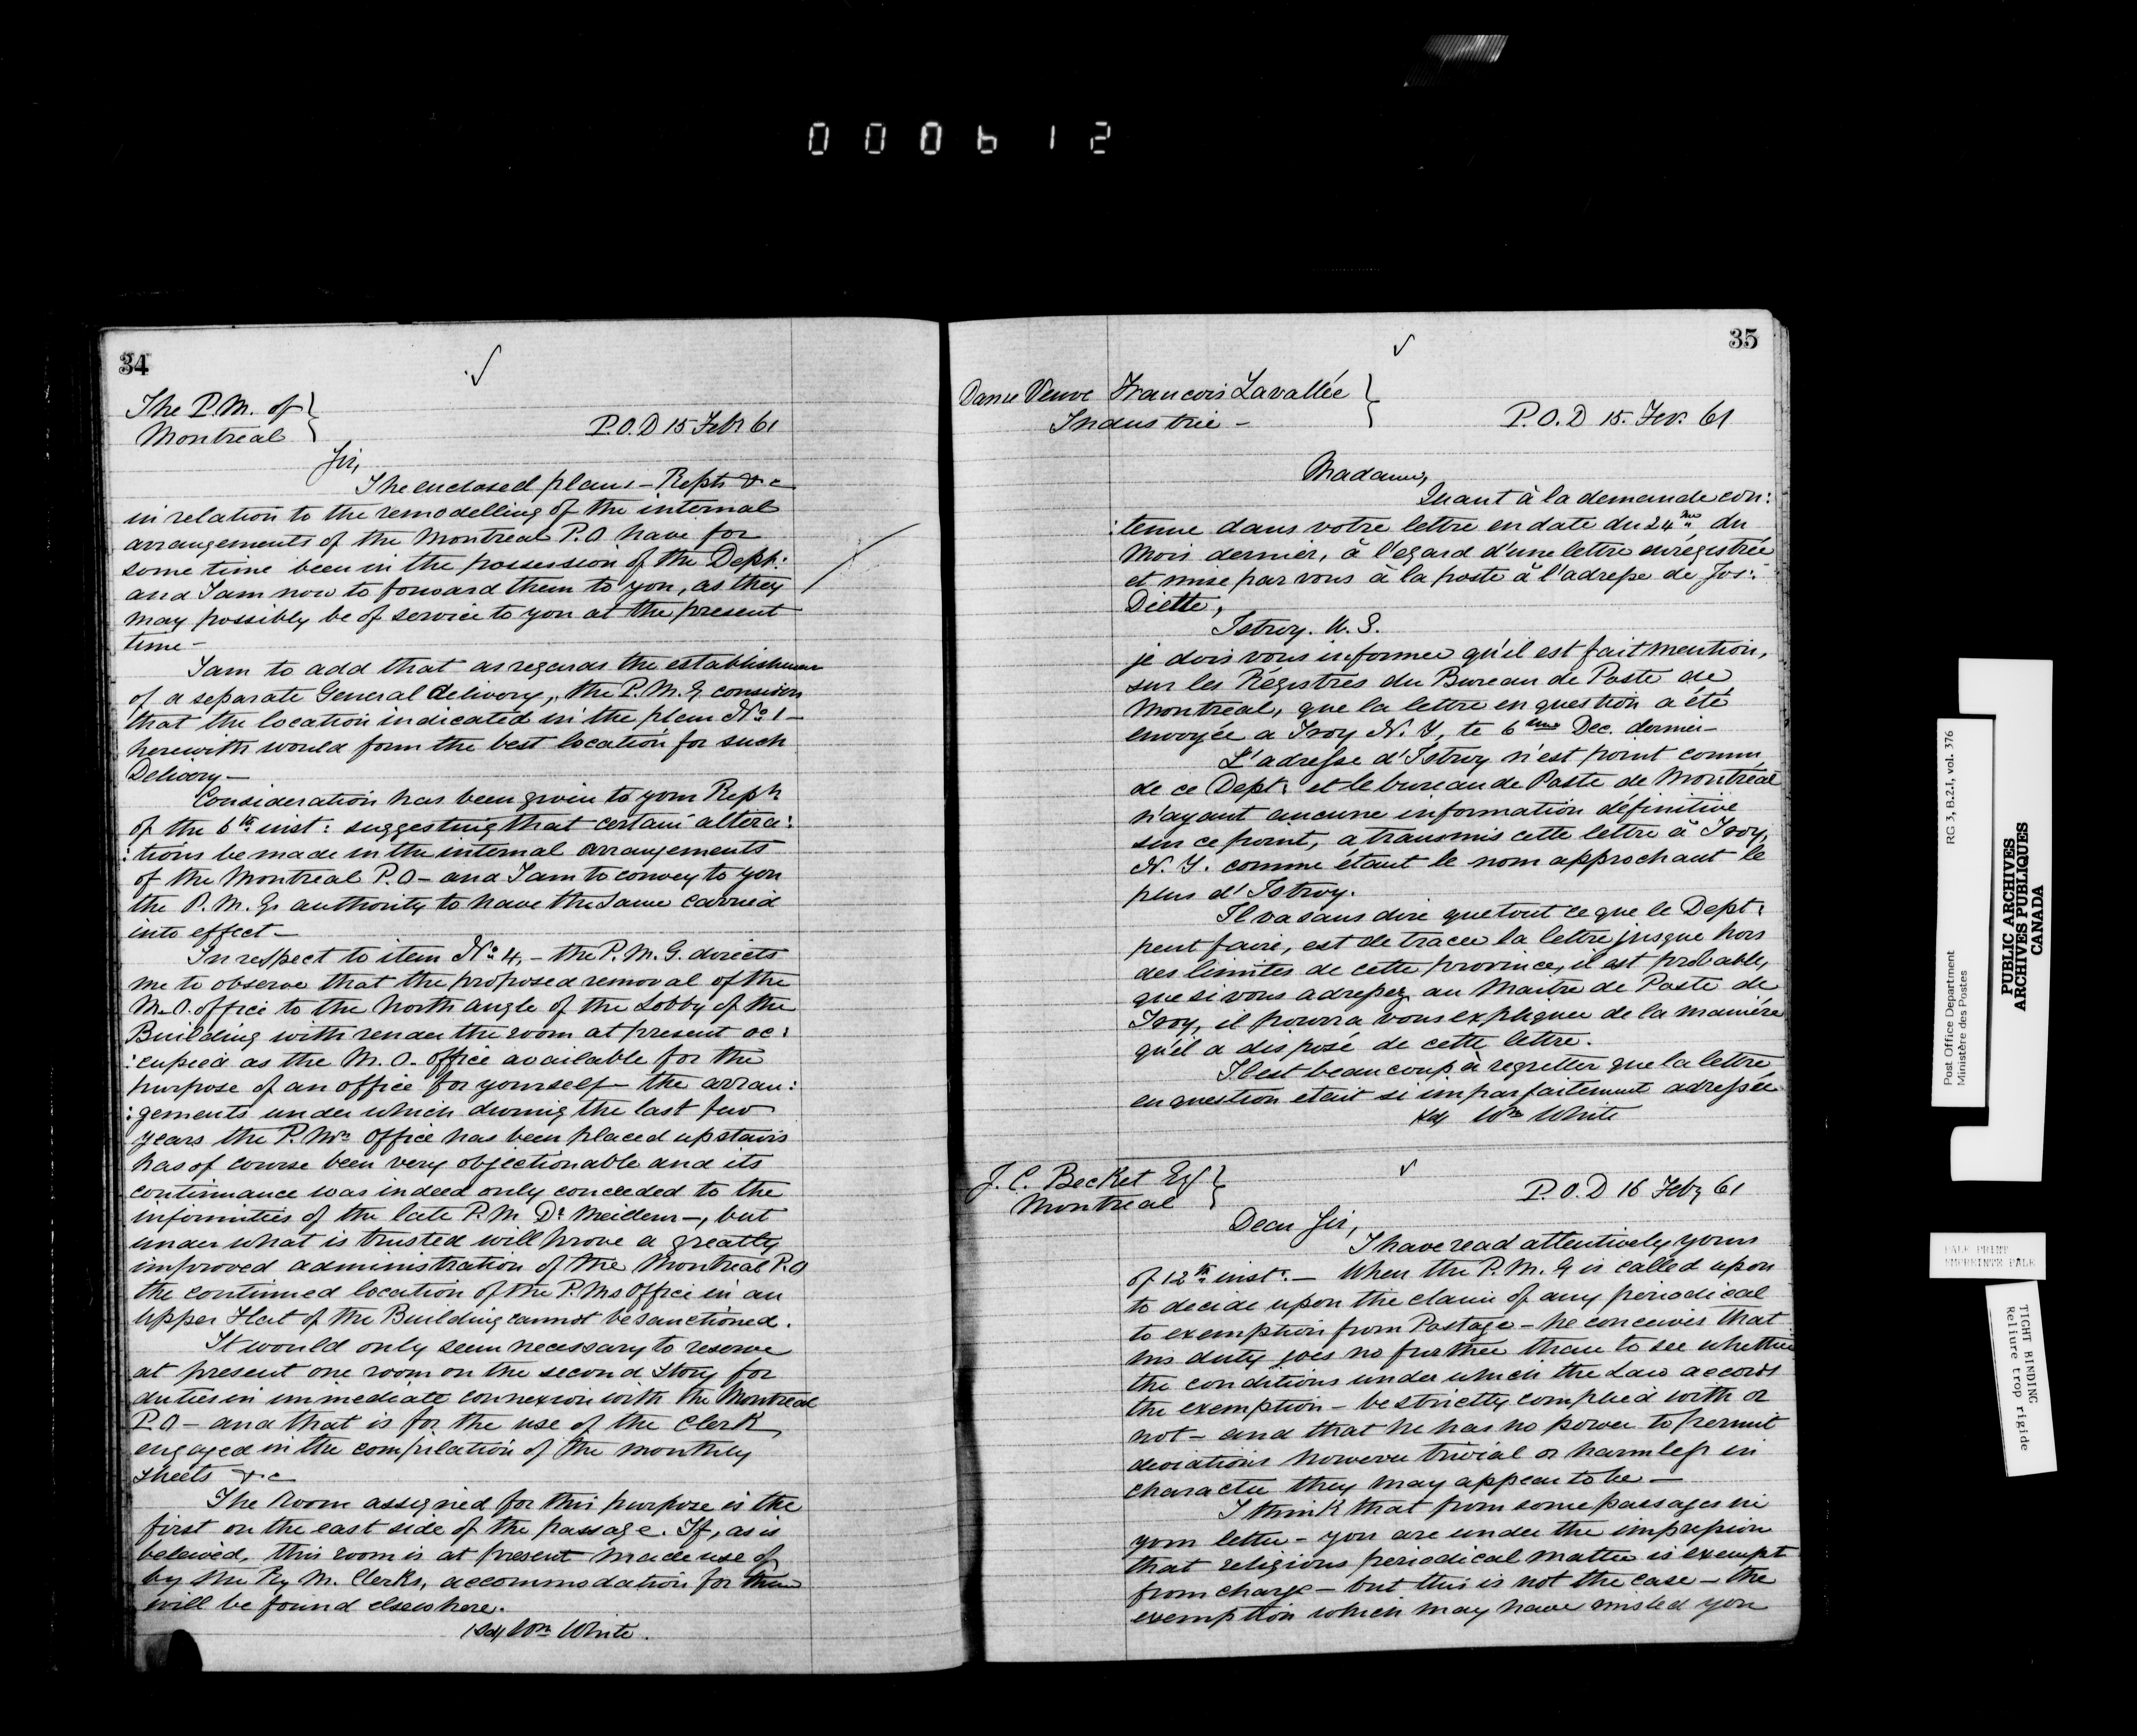 000612
34
The P.M. of
Montreal
P.O.D 15 Feb 61
Sir,
The enclosed plans – Repts &c
in relation to the remodelling of the internal
arrangements of the Montreal P.O have for
some time been in the possession of the Dept:
and I am now to forward them to you, as they
may possibly be of service to you at the present
time –
I am to add that as regards the establishment
of a separate General delivery, the P.M.G. considers
that the location indicated in the plan No. 1 –
herewith would form the best location for such
Delivery –
Consideration has been given to your Rept.
of the 6th inst: suggesting that certain altera:
:tions be made in the internal arrangements
of the Montreal P.O – and I am to convey to you
the P.M.G's authority to have the same carried
into effect –
In respect to item No. 4, – the P.M.G. directs
me to observe that the proposed removal of the
M.O. office to the North angle of the Lobby of the
Building with render the room at present oc:
:cupied as the M.O. office available for the
purpose of an office for yourself – the arran:
:gements under which during the last few
years the P.Ms. Office has been placed upstairs
has of course been very objectionable and its
continuance was indeed only conceeded to the
infirmities of the late P.M. Dr. Meilleur –, but
under what is trusted will prove a greatly
improved administration of the Montreal P.O
the continued location of the P.Ms Office in an
upper Flat of the Building cannot be sanctioned.
It would only seem necessary to reserve
at present one room on the second story for
duties in immediate connexion with the Montreal
P.O – and that is for the use of the Clerk
engaged in the compilation of the monthly
sheets &c
The Room assigned for this purpose is the
first on the east side of the passage. If, as is
beleived, this room is at present made use of
by the Ry M. Clerks, accommodation for them
will be found elsewhere.
/Sd/ Wm White.
35
Dame Veuve Francois Lavallée
Industrie –
P.O.D 15. Fev. 61
Madame,
Quant à la demande con:
:tenue dans votre lettre en date du 24me du
Mois dernier, à l'egard d'une lettre enrégistrée
et mise par vous à la poste à l'adresse de Jos:
Diette,
Istroy. U.S.
je dois vous informer qu'il est fait mention,
sur les Régistres du Bureau de Poste de
Montréal, que la lettre en question a été
envoyée a Troy N.Y, le 6eme Dec. dernier
L'adresse d'Istroy n'est point connu
de ce Dept: et le bureau de Poste de Montréal
n'ayant aucune information définitive
sur ce point, a transmis cette lettre à Troy,
N.Y. comme étant le nom approchant le
plus d'Istroy.
Il va sans dire que tout ce que le Dept:
peut faire, est de tracer la lettre jusque hors
des limites de cette province, il est probable,
que si vous adressez au Maitre de Poste de
Troy, il pourra vous expliquer de la manière
qu'il a disposé de cette lettre.
Il est beaucoup à regretter que la lettre
en question etait si imparfaitement adressée
/Sd/ Wm White
J.C. Becket Esq
Montreal
P.O.D 16 Feby 61
Dear Sir,
I have read attentively yours
of 12th inst. – When the P.M.G is called upon
to decide upon the claim of any periodical
to exemption from Postage – he conceives that
his duty goes no further than to see whether
the conditions under which the Law accords
the exemption – be strictly complied with or
not – and that he has no power to permit
deviations however trivial or harmless in
character they may appear to be –
I think that from some passages in
your letter – you are under the impression
that religious periodical matter is exempt
from charge – but this is not the case – the
exemption which may have misled you
Post Office Department RG 3, B.2.1, vol. 376
Ministère des Postes
PUBLIC ARCHIVES
ARCHIVES PUBLIQUES
CANADA
PALE PRINT
EMPREINTE PALE
TIGHT BINDING
Reliure trop rigide